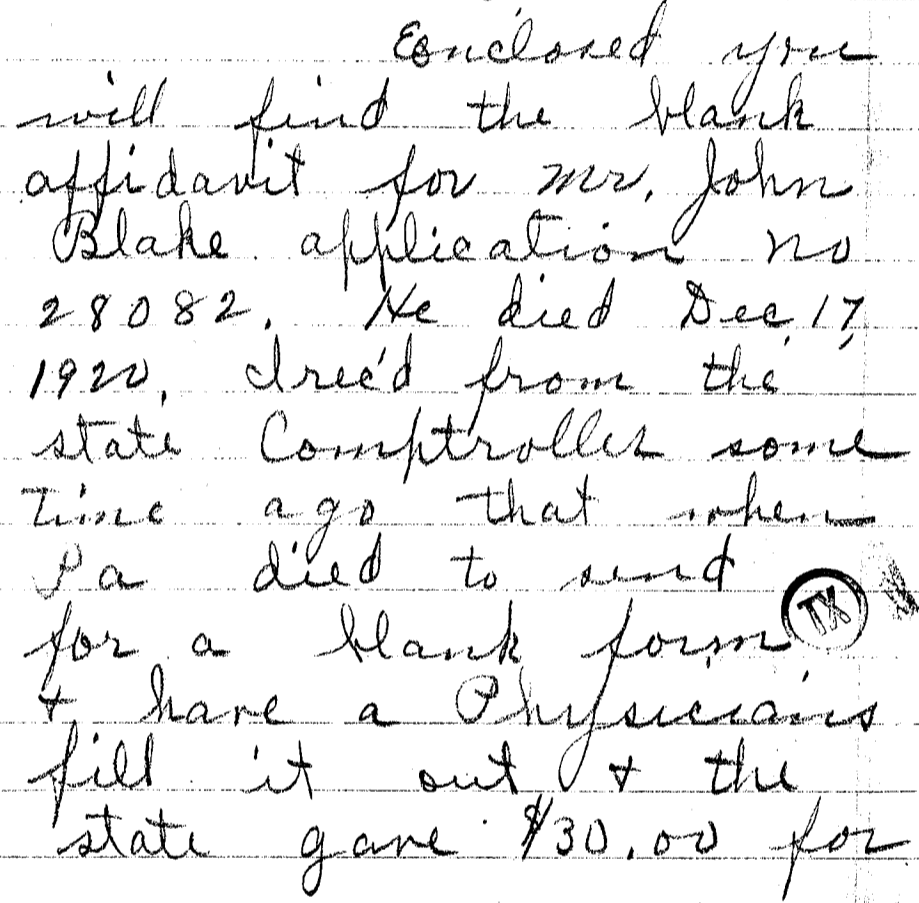 Enclosed you
will find the blank
affidavit for Mr. John
Blake application no
28082. He died Dec. 17,
1920. I rec'd from the
state Comptroller some
time ago that when
Pa died to send
for a blank form
TX
+ have a Physicians
fill it out + the
state gave $30.00 for